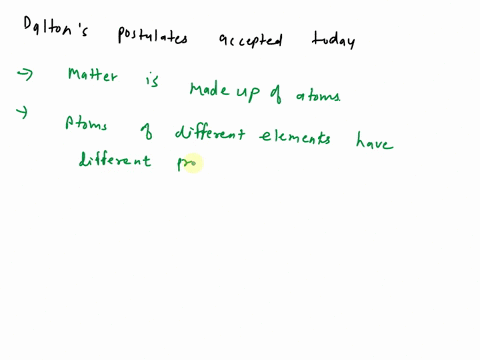 Dalton's postulates accepted today
→ Matter is made up of atoms
→ Atoms of different elements have
different pro